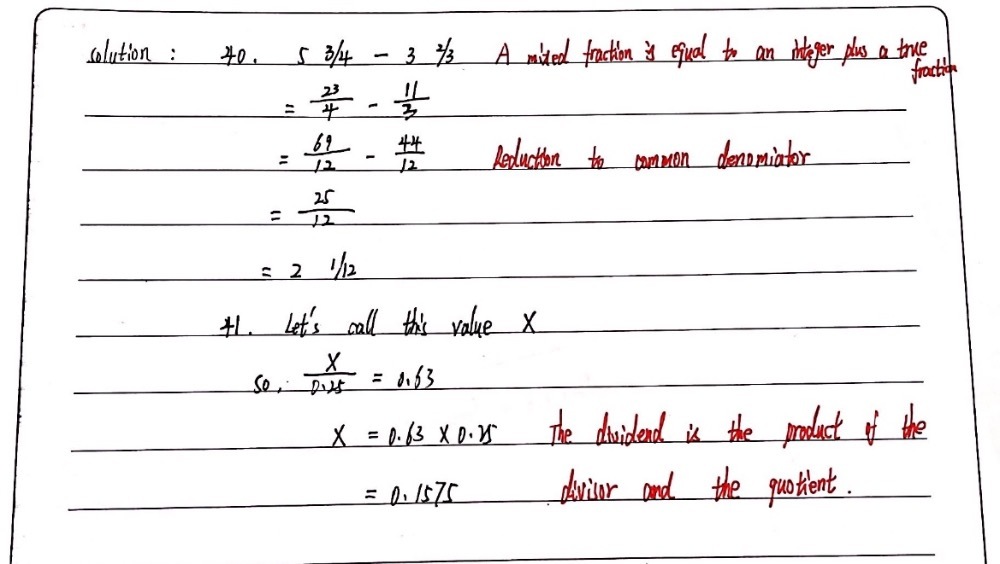 solution : 40. 5 3/4 - 3 2/3 A mixed fraction is equal to an integer plus a true fraction
= 23/4 - 11/3
= 69/12 - 44/12 Reduction to common denomiator
= 25/12
= 2 1/12
41. Let's call this value X
so, X/0.25 = 0.63
X = 0.63 X 0.25 The dividend is the product of the
= 0.1575 divisor and the quotient.